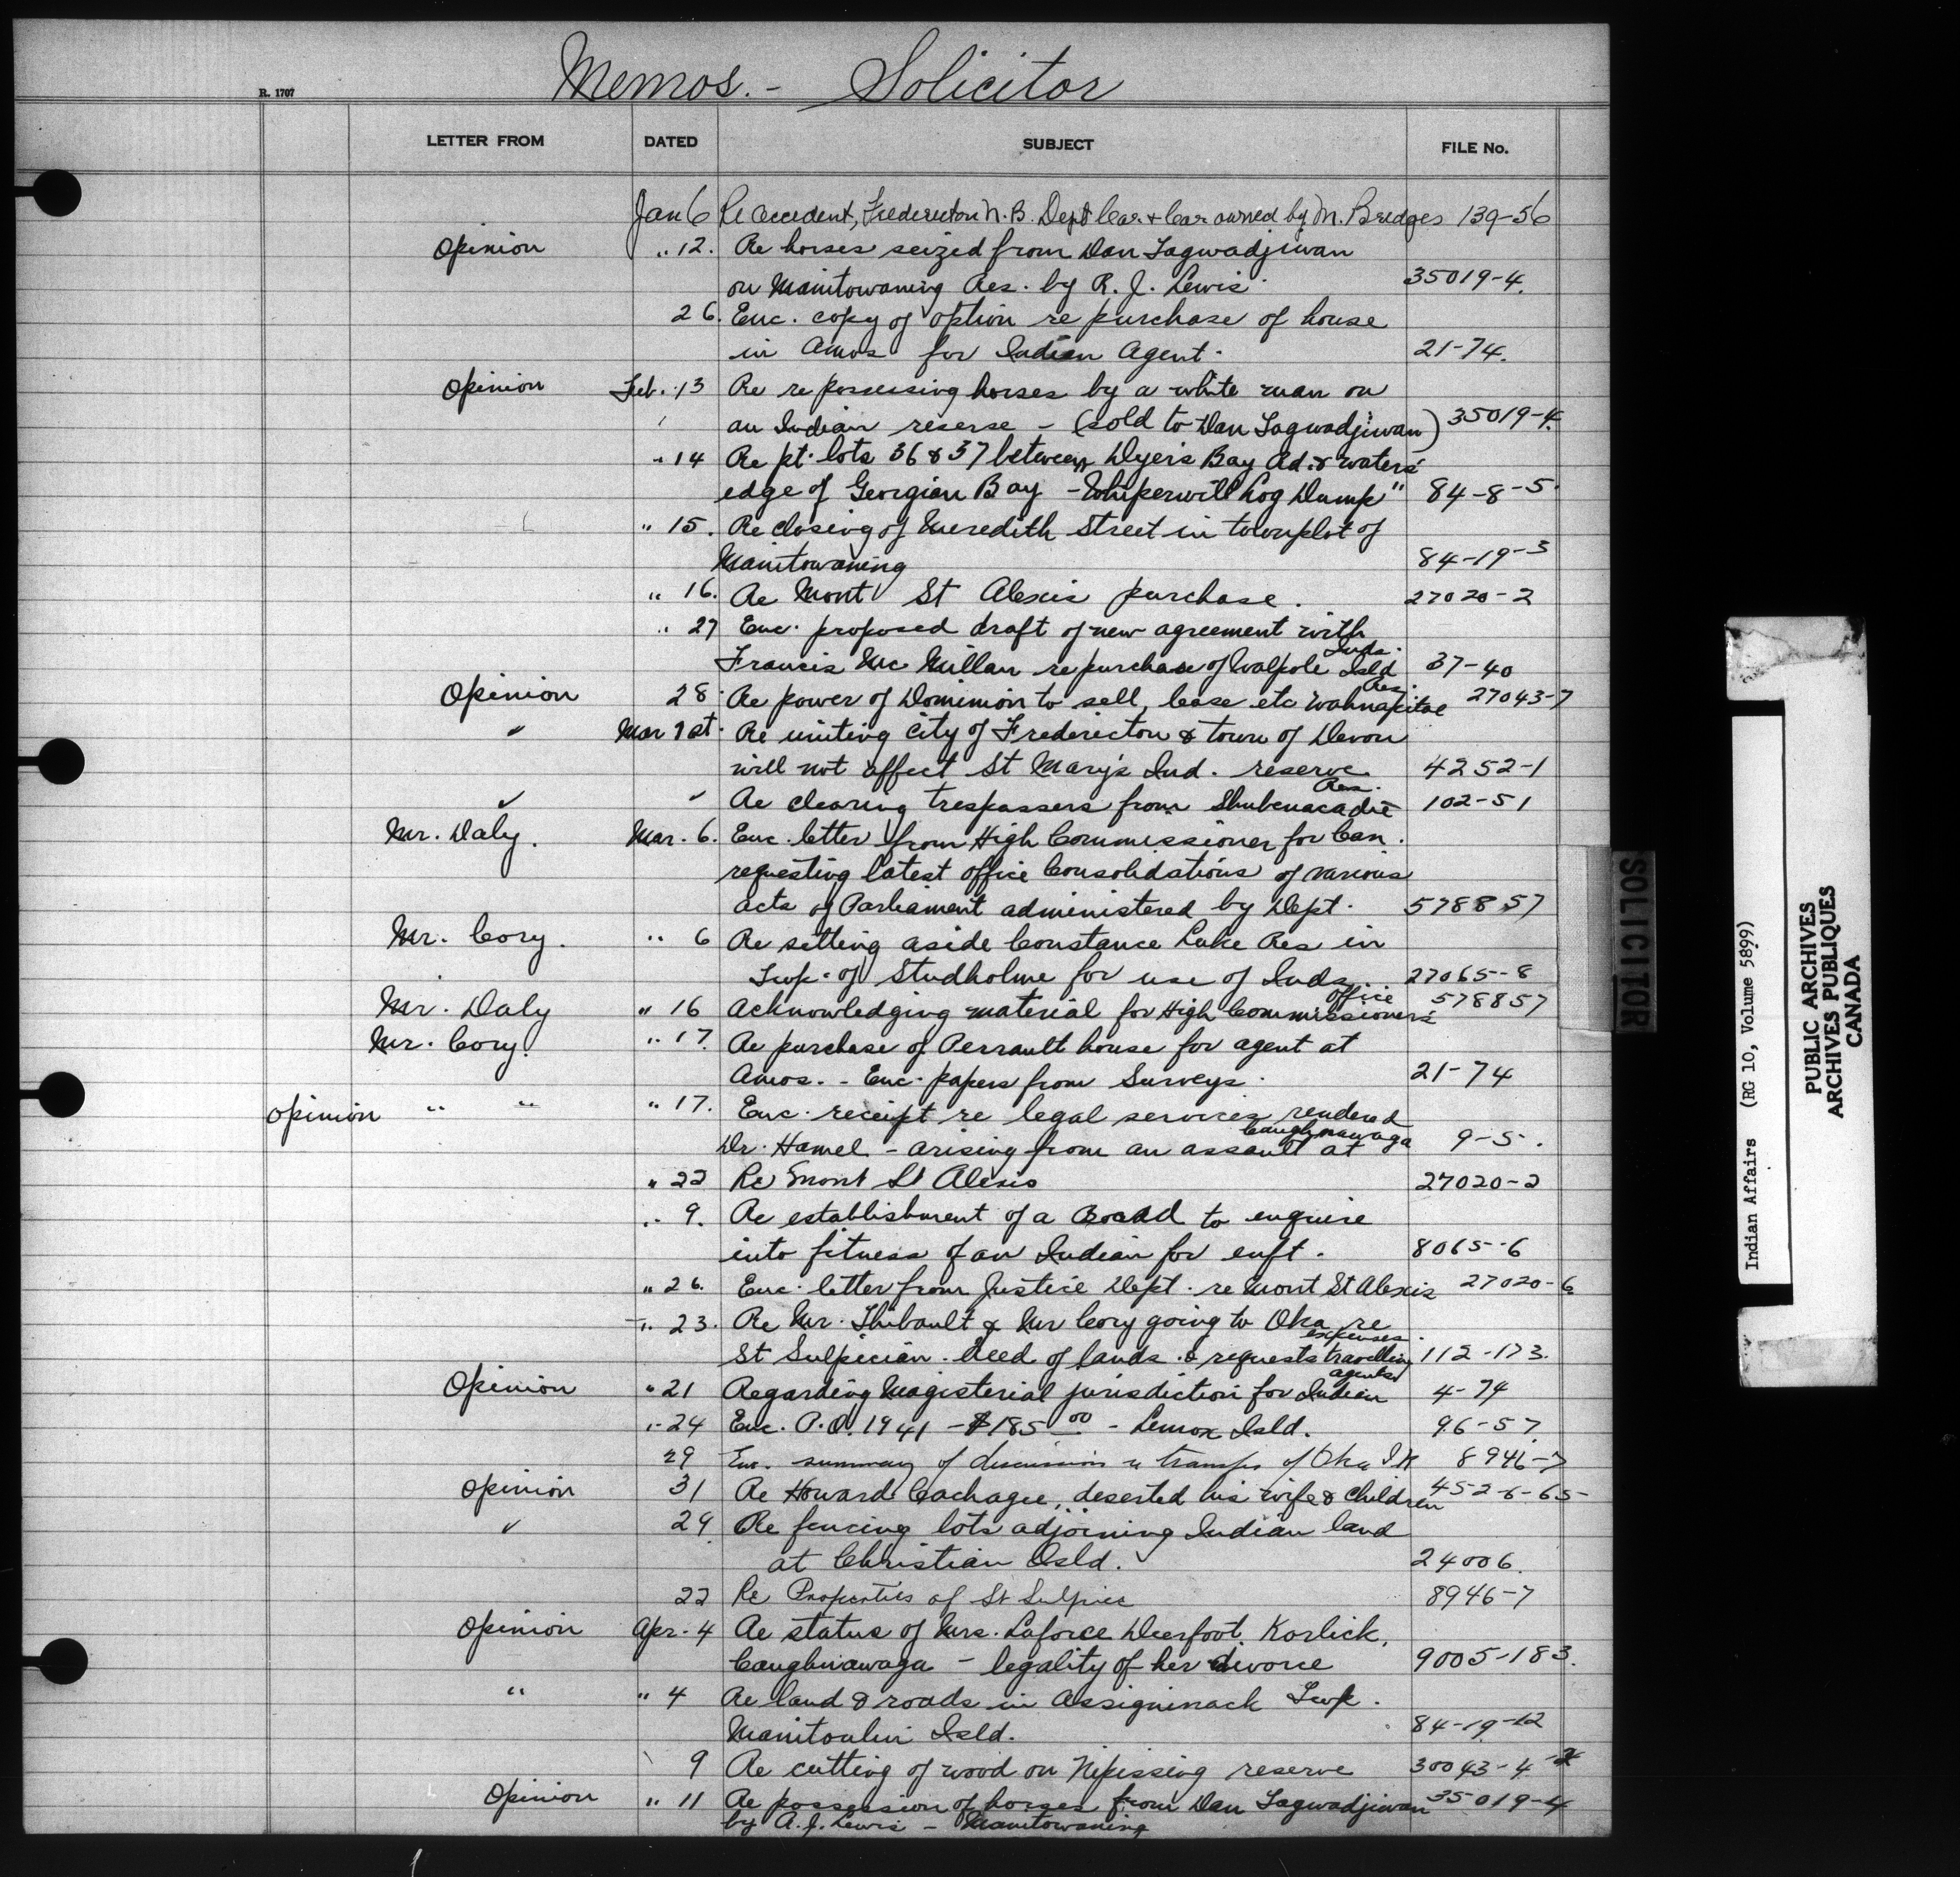 Memos. - Solicitor
R. 1707
LETTER FROM DATED SUBJECT FILE No.
Jan 6 Re accident, Fredericton N.B. Dept Car & Car owned by M. Bridges 139-56
Opinion " 12. Re horses seized from Dan Tagwadjiwan
on Manitowaning Res. by R. J. Lewis. 35019-4.
26. Enc. copy of option re purchase of house
in Amos for Indian Agent. 21-74.
Opinion Feb. 13 Re repossessing horses by a white man on
an Indian reserve - (sold to Dan Tagwadjiwan) 35019-4.
" 14 Re pt. lots 36 & 37 between Dyer's Bay Rd. & waters
edge of Georgian Bay - Whiperwill Log Dump" 84-8-5.
" 15. Re closing of Meredith Street in townplot of
Manitowaning 84-19-3
" 16. Re Mont St Alexis purchase. 27020-2
" 27 Enc. proposed draft of new agreement with
Francis Mc Millan re purchase of Walpole Isld Inds. 37-40
Opinion 28. Re power of Dominion to sell, lease etc Wahnapitae Res. 27043-7
" Mar 1st. Re uniting City of Fredericton & town of Devon
will not affect St Mary's Ind. reserve. 4252-1
" " Re clearing trespassers from Shubenacadie Res. 102-51
Mr. Daly. Mar. 6. Enc. letter from High Commissioner for Can.
requesting latest office Consolidations of various
acts of Parliament administered by Dept. 578857
Mr. Cory. " 6 Re setting aside Constance Lake Res in
Twp. of Studholme for use of Inds 27065-8
Mr. Daly " 16 Acknowledging material for High Commissioners office 578857
Mr. Cory. " 17. Re purchase of Perrault house for agent at
Amos. - Enc. papers from Surveys. 21-74
Opinion " " " 17. Enc. receipt re legal services rendered
Dr. Hamel - arising from an assault at Caughnawaga 9-5.
" 22 Re Mont St Alexis 27020-2
" 9. Re establishment of a Board to enquire
into fitness of an Indian for enft. 8065-6
" 26. Enc. letter from Justice Dept. re Mont St Alexis 27020-6
" 23. Re Mr. Thibault & Mr Cory going to Oka re
St Sulpician. Deed of lands. & requests travelling expenses. 112-173.
Opinion " 21 Regarding Magisterial jurisdiction for Indian agents 4-74
" 24 Enc. P.O. 1941 - $185 00 - Lenox Isld. 96-57.
29 Enc. summary of discussion re transfer of Oka 8946-7
Opinion 31 Re Howard Cachagee, deserted his wife & children 452-6-65-
" 29 Re fencing lots adjoining Indian land
at Christian Isld. 24006.
22 Re Properties of St Sulpice 8946-7
Opinion Apr. 4 Re status of Mrs. Laforce Deerfoot Korlick,
Caughnawaga - legality of her divorce 9005-183.
" " 4 Re land & roads in Assiginack Twp.
Manitoulin Isld. 84-19-12
9 Re cutting of wood on Nipissing reserve 30043-4
Opinion " 11 Re possession of horses from Dan Tagwadjiwan 35019-4
by R. J. Lewis - Manitowaning
SOLICITOR
Indian Affairs (RG 10, Volume 5899)
PUBLIC ARCHIVES
ARCHIVES PUBLIQUES
CANADA